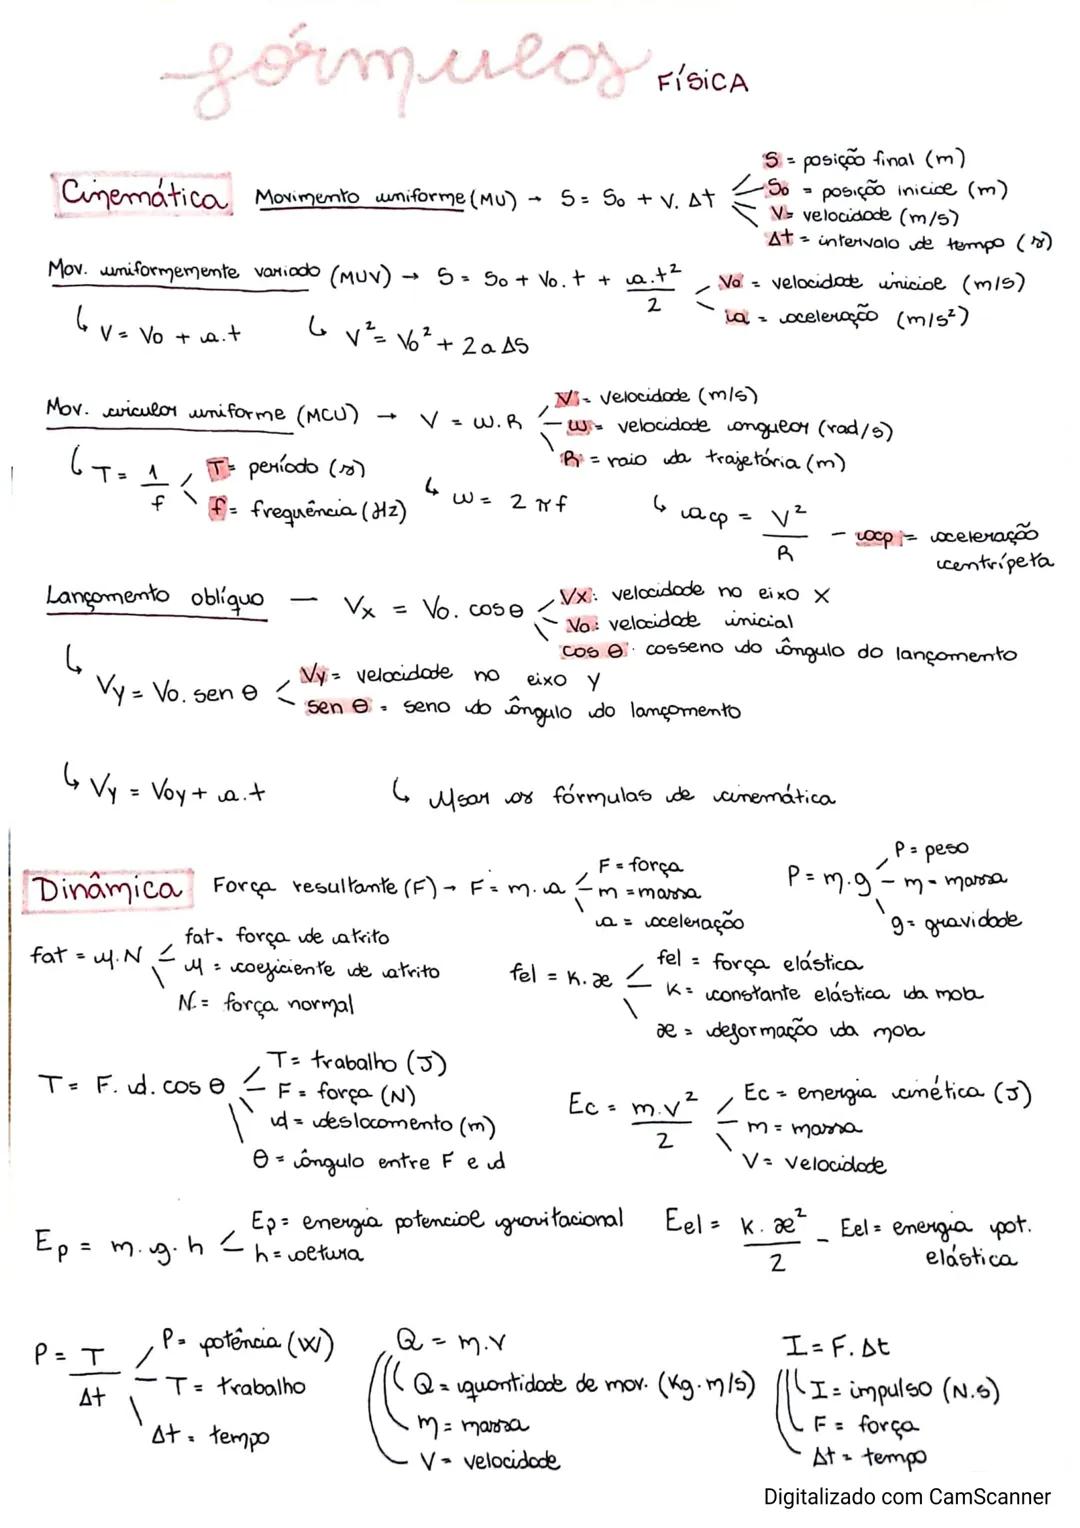 fórmulas FÍSICA
Cinemática Movimento uniforme (MU) → S = S₀ + V. Δt
S = posição final (m)
S₀ = posição inicial (m)
V = velocidade (m/s)
Δt = intervalo de tempo (s)
Mov. uniformemente variado (MUV) → S = S₀ + V₀.t + a.t²/2
V₀ = velocidade inicial (m/s)
a = aceleração (m/s²)
↳ V = V₀ + a.t ↳ V² = V₀² + 2aΔS
Mov. circular uniforme (MCU) → V = ω.R
V = velocidade (m/s)
ω = velocidade angular (rad/s)
R = raio da trajetória (m)
↳ T = 1/f
T = período (s)
f = frequência (Hz)
↳ ω = 2πf
↳ acp = V²/R - acp = aceleração
centrípeta
Lançamento oblíquo — Vx = V₀. cosθ
Vx: velocidade no eixo X
V₀: velocidade inicial
cos θ: cosseno do ângulo do lançamento
↳ Vy = V₀. sen θ
Vy = velocidade no eixo Y
sen θ = seno do ângulo do lançamento
↳ Vy = V₀y + a.t ↳ Usar as fórmulas de cinemática
Dinâmica Força resultante (F) → F = m.a
F = força
m = massa
a = aceleração
P = m.g
P = peso
m = massa
g = gravidade
fat = μ.N
fat = força de atrito
μ = coeficiente de atrito
N = força normal
fel = K.x
fel = força elástica
K = constante elástica da mola
x = deformação da mola
T = F. d. cos θ
T = trabalho (J)
F = força (N)
d = deslocamento (m)
θ = ângulo entre F e d
Ec = m.v²/2
Ec = energia cinética (J)
m = massa
V = velocidade
Ep = m.g.h
Ep = energia potencial gravitacional
h = altura
Eel = K.x²/2 - Eel = energia pot.
elástica
P = T/Δt
P = potência (W)
T = trabalho
Δt = tempo
Q = m.v
Q = quantidade de mov. (Kg.m/s)
m = massa
V = velocidade
I = F.Δt
I = impulso (N.s)
F = força
Δt = tempo
Digitalizado com CamScanner